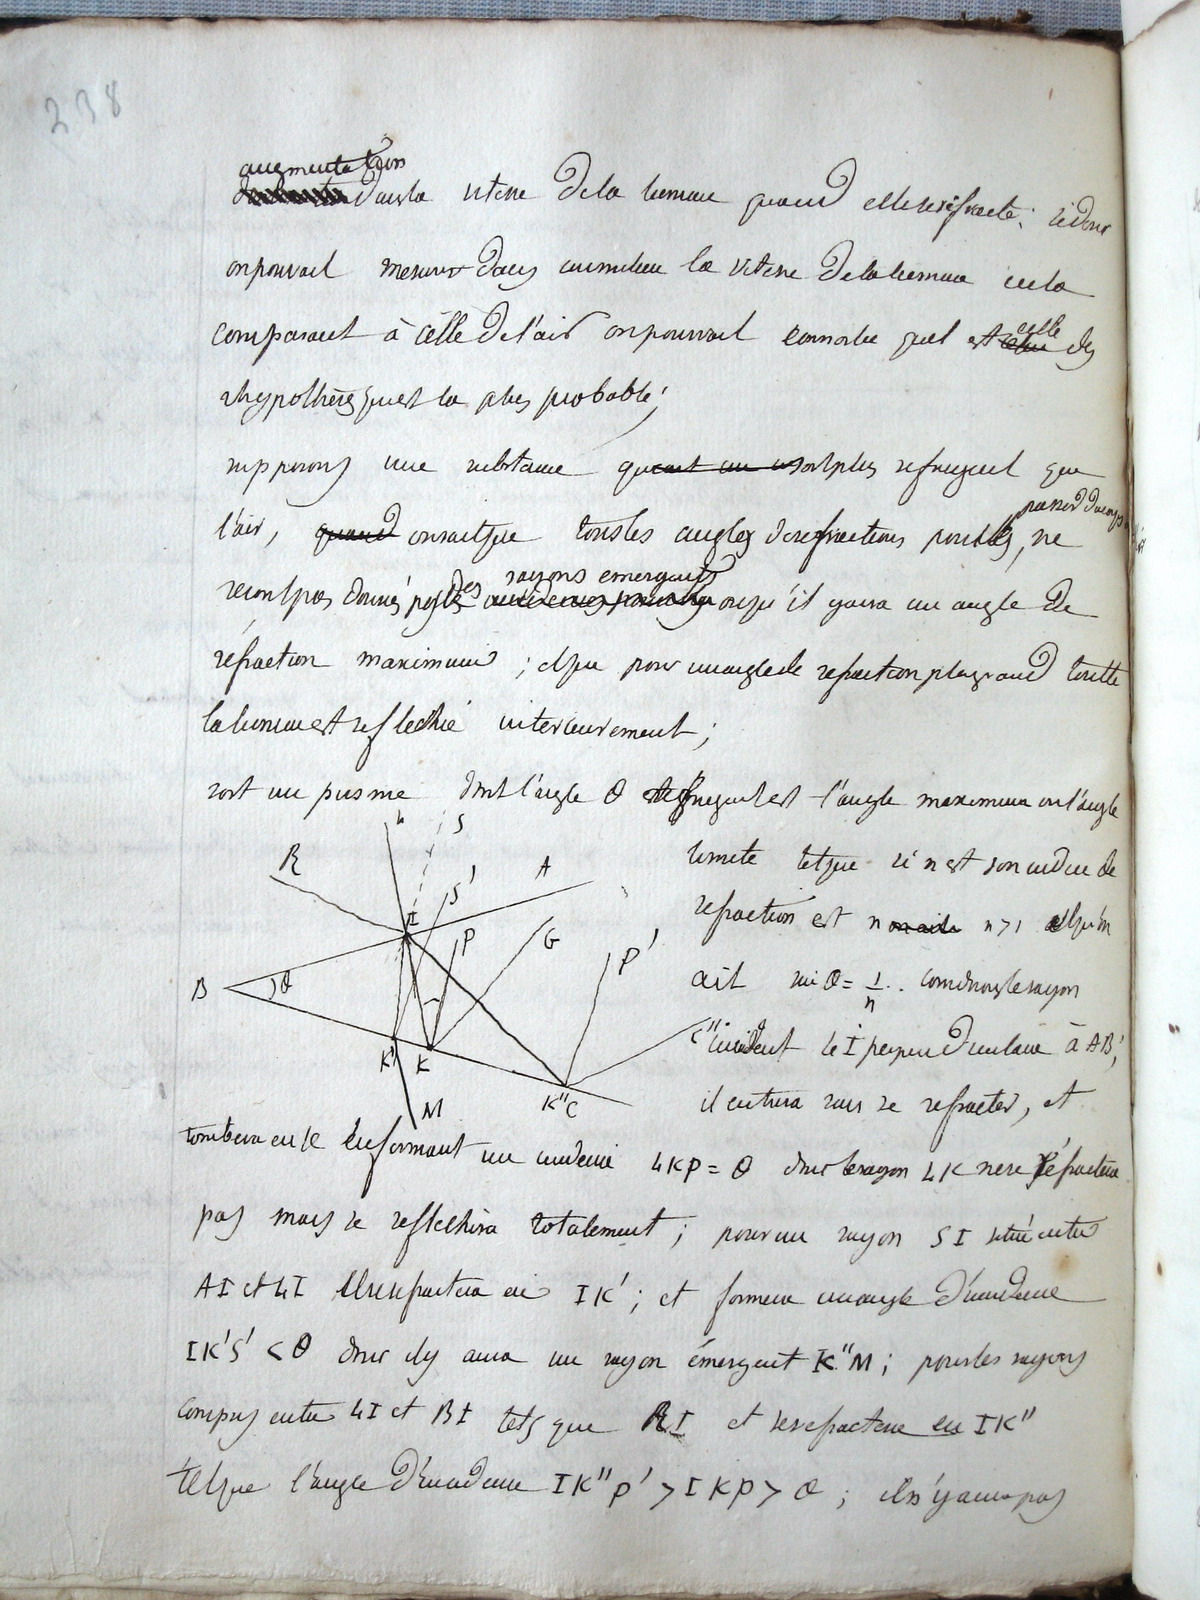 238
augmentation
dans la vitesse de la lumiere quand elle se refracte; si donc
on pouvait mesurer dans un milieu la vitesse de la lumiere en la
comparant à celle de l'air on pourrait connoitre quel est celle des
2 hypothèses qui est la plus probable;
supposons une substance qui soit plus refringent que
l'air, quand on sait que tous les angles de refractions possibles, ne
passer dans
seront pas donnés par des rayons emergents ou qu'il y aura un angle de
réfraction maximum; et que pour un angle de refraction plus grand toutte
la lumiere est reflechie interieurement;
soit un prisme dont l'angle θ refringent est l'angle maximum ou l'angle
limite tel que si n est son indice de
refraction et n n>1 et qu'on
ait sin θ = 1/n. considerons le rayon
incident LI perpendiculaire à AB,
il entrera sans se refracter, et
L S
R S' A
I P G P'
B θ
K' K K"C
M
tombera en K en formant une incidence LKP = θ donc le rayon LK ne se réfractera
pas mais se reflechira totalement; pour un rayon SI situé entre
AI et LI il se refractera en IK'; et formera un angle d'incidence
IK'S' < θ donc il y aura un rayon émergent K"M; pour les rayons
compris entre LI et BI tels que RI et se refractera en IK"
tel que l'angle d'incidence IK"P' > IKP > θ; il n'y aura pas